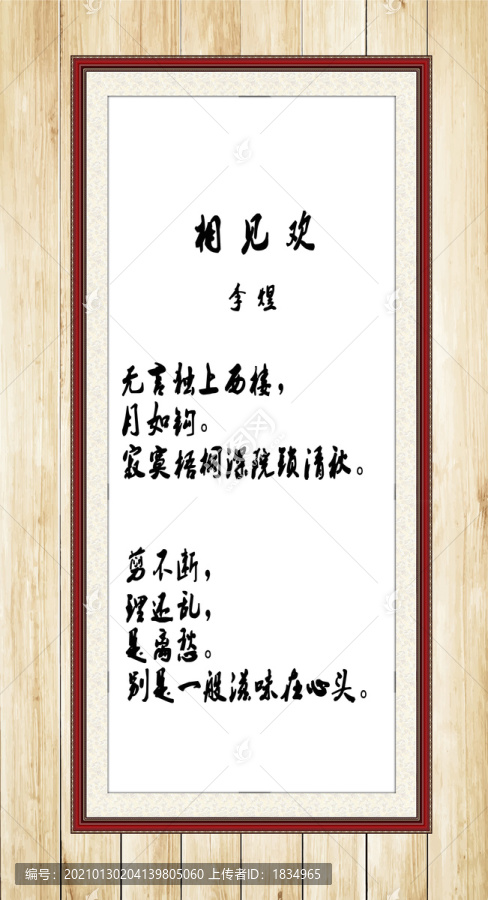 相见欢
李煜
无言独上西楼，
月如钩。
寂寞梧桐深院锁清秋。
剪不断，
理还乱，
是离愁。
别是一般滋味在心头。
编号：20210130204139805060 上传者ID：1834965